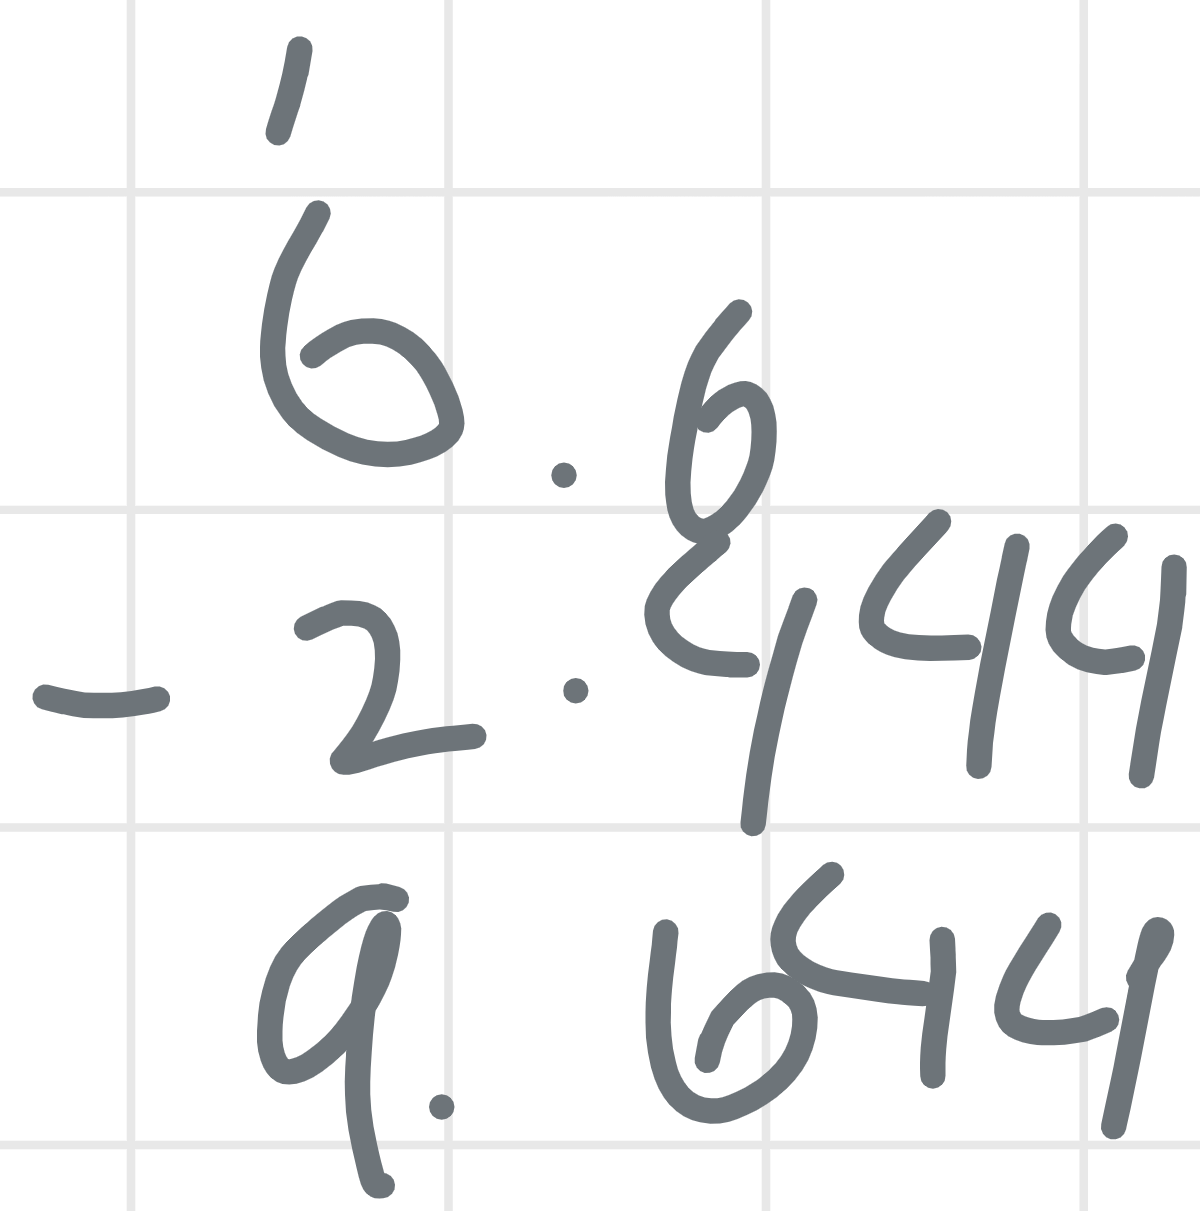 1
6.6
- 2.444
9.644